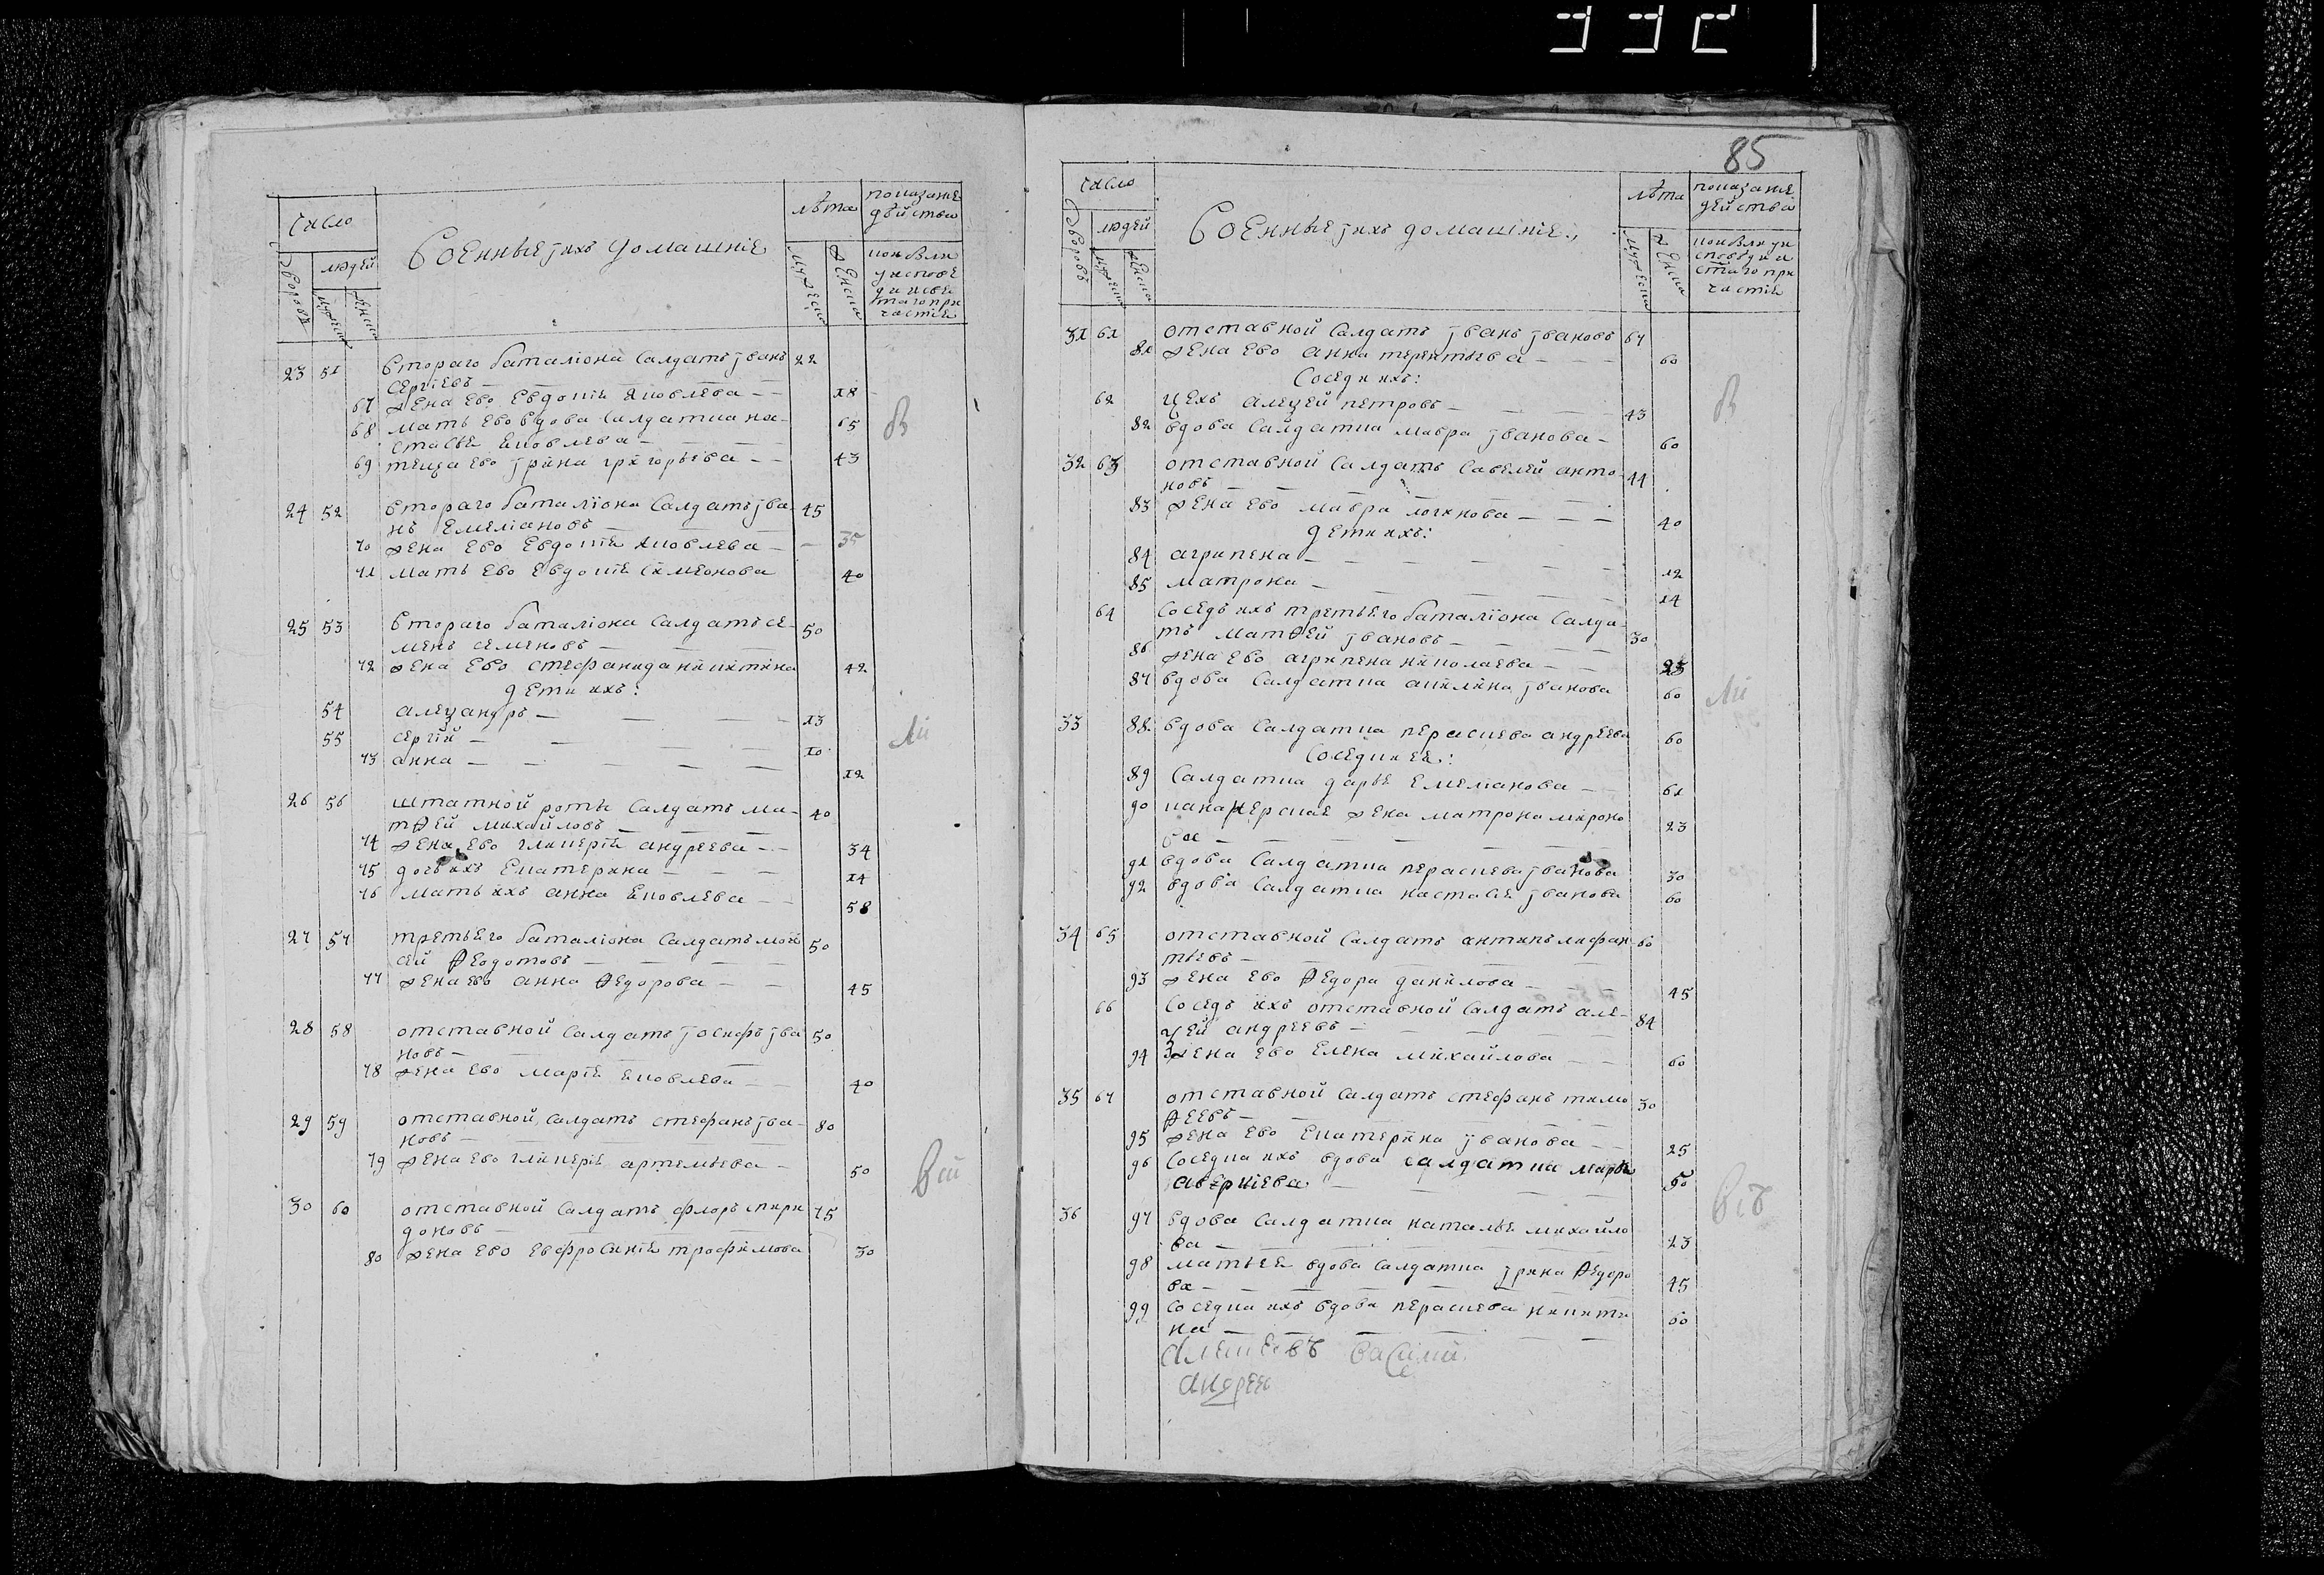 332
число
Военные ихъ домашніе
лѣта
показаніе
дѣйства
дворовъ
людей
мужеска
женска
мужеска
женска
кои были
у испове
ди и свя
таго при
частія
23 51 втораго баталіона салдатъ іванъ 22
сергіевъ —
67 жена ево евдокія яковлева — 18
68 мать ево вдова салдатка на- 65
стасья яковлева —
69 теща ево ірина григорьева — 43
24 52 втораго баталіона салдатъ іва 45
нъ емеліановъ —
70 жена ево евдокія яковлева — 35
71 мать ево евдокія симеонова 40
25 53 втораго баталіона салдатъ се- 50
менъ семеновъ —
72 жена ево стефанида никитина 42
дети ихъ:
54 алеѯандръ — 13
55 сергій — 10
73 анна — 12
26 56 штатной роты салдатъ ма- 40
тѳей михайловъ —
74 жена ево гликерія андреева — 34
75 дочь ихъ екатерина — 14
76 мать ихъ анна яковлева — 58
27 57 третьего баталіона салдатъ мои 50
сей ѳеодотовъ —
77 жена ево анна ѳедорова — 45
28 58 отставной салдатъ іосифъ іва 50
новъ —
78 жена ево марія яковлева — 40
29 59 отставной салдатъ стефанъ іва- 80
новъ —
79 жена ево гликерія артемьева — 50
30 60 отставной салдатъ флоръ спири 75
доновъ —
80 жена ево евфросинія трофимова 30
85
число
Военные ихъ домашніе
лѣта
показаніе
действа
дворовъ
людей
мужеска
женска
мужеска
женска
кои были у и
споведи и
стаго при
частія
31 61 отставной салдатъ іванъ івановъ 67
81 жена ево анна терентьева — 60
Соседи ихъ:
62 цехъ алеѯей петровъ — 43
82 вдова салдатка мавра іванова — 60
32 63 отставной салдатъ савелей анто 44
новъ —
83 жена ево мавра логинова — 40
дети ихъ:
84 агрипена — 12
85 матрона — 14
64 соседъ ихъ третьего баталіона салда-
тъ матѳей івановъ — 30
86 жена ево агрипена николаева — 25
87 вдова салдатка акилина іванова 60
33 88 вдова салдатка пераскева андреева 60
Соседи ея:
89 салдатка дарья емеліанова — 61
90 канонерская жена матрона мироно 23
ва —
91 вдова салдатка пераскева іванова 30
92 вдова салдатка настасья іванова 60
34 65 отставной салдатъ антипъ лифан- 60
тьевъ —
93 жена ево ѳедора данилова — 45
66 соседъ ихъ отставной салдатъ але- 84
ѯей андреевъ —
94 жена ево елена михайлова — 60
35 67 отставной салдатъ стефанъ тимо 30
ѳеевъ —
95 жена ево екатерина іванова — 25
96 соседка ихъ вдова салдатка марья 50
аверкіева —
36 97 вдова салдатка наталья михайло
ва — 23
98 мать ея вдова салдатка ірина ѳедоро
ва — 45
99 соседка ихъ вдова пераскева никити
на — 60